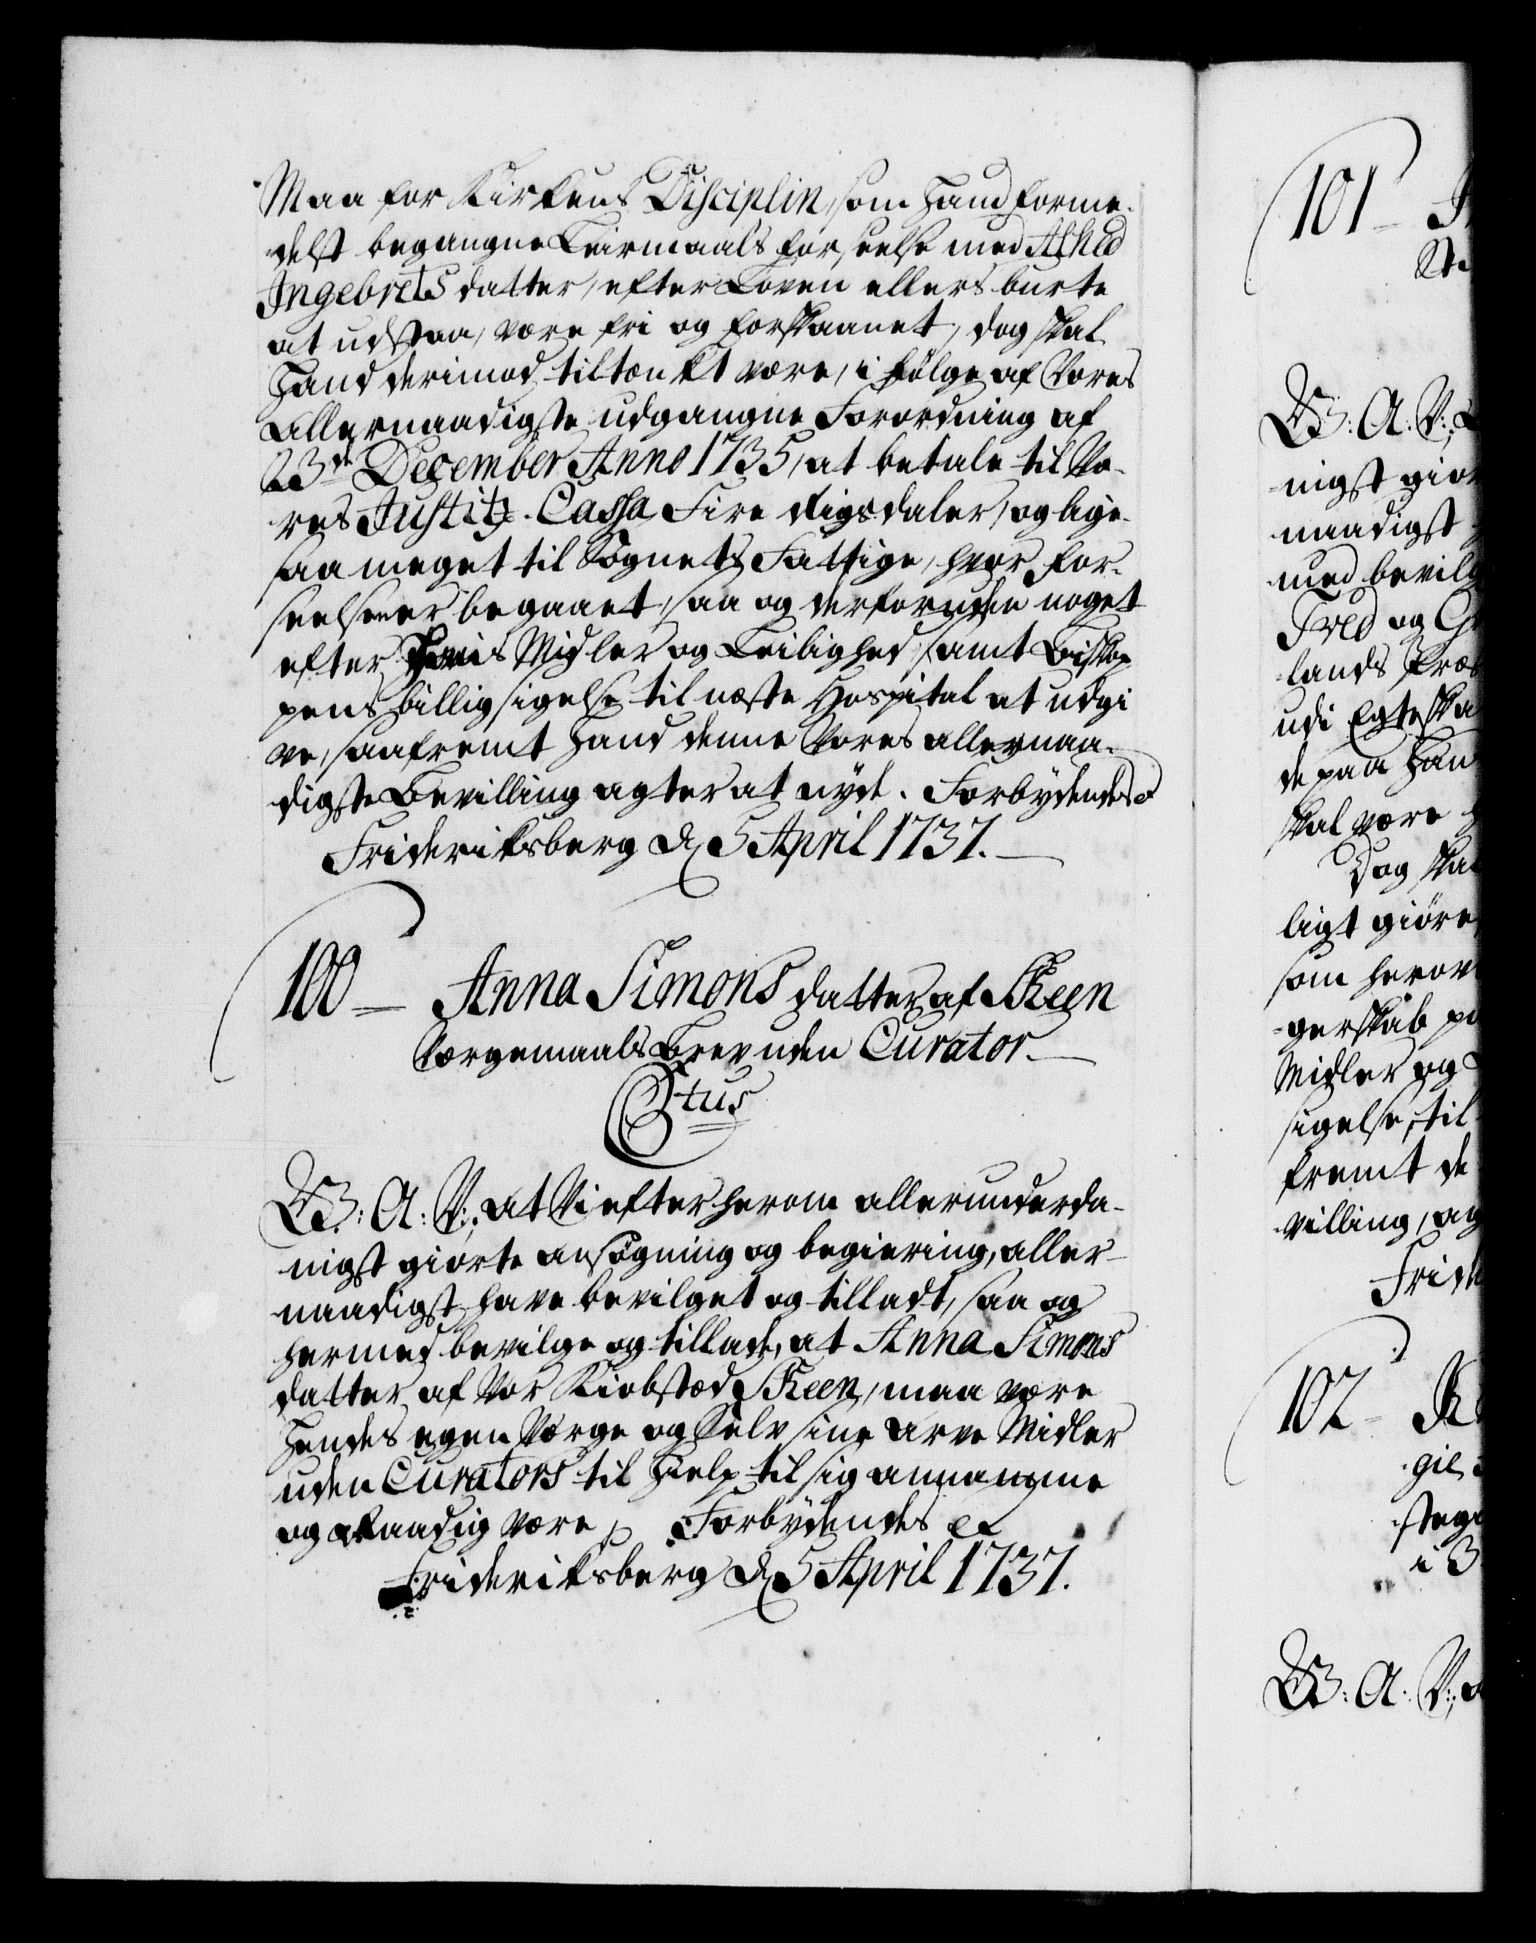 Maa for Kirkens Disciplin, som hand forme-
delst begangne Leirmaals forseelse med Alhed
Ingebrets datter, efter Loven ellers burte
at udstaa, være fri og forskaanet, dog skal
Hand derimod tiltænkt være, i følge af Vores
Allernaadigste udgangne Forordning af
23de December Anno 1735, at betale til Vo-
res Justitz-Cassa Fire Rigsdaler, og lige-
saa meget til Sognets Fattige, hvor for-
seelsen er begaaet, saa og derforuden noget
efter Hans Midler og Leilighed, samt Biskop-
pens billig sigelse til næste Hospital at udgi
ve, saafremt Hand denne Vores allernaa-
digste Bevilling agter at nyde. Forbydendes
Frideriksberg d 5 April 1737.
100 Anna Simons datter af Skeen
Værgemaals Brev uden Curator.
C 6tus
W: A: V:, at Vi efter herom allerunderda-
nigst giorte ansøgning og begiering, aller-
naadigst have bevilget og tilladt, saa og
hermed bevilge og tillade, at Anna Simons
datter af Vor Kiobstæd Skeen, maa være
Hendes egen Værge og Selv sine Arve Midler
uden Curators til Hielp til sig annamme
og raadig være, Forbydendes etc
Frideriksberg d 5 April 1737.
101
W: A: V:,
nigst gior
naadigst
med bevilg
Fred og
lands Præ
udi Egteska
de paa Han
skal være
Dog ska
ligt giøre
som herov
gerskab p
Midler og
sigelse, til
fremt de
villing, ag
Frid
102 K
gie
steg
i 3
W: A: V:, a